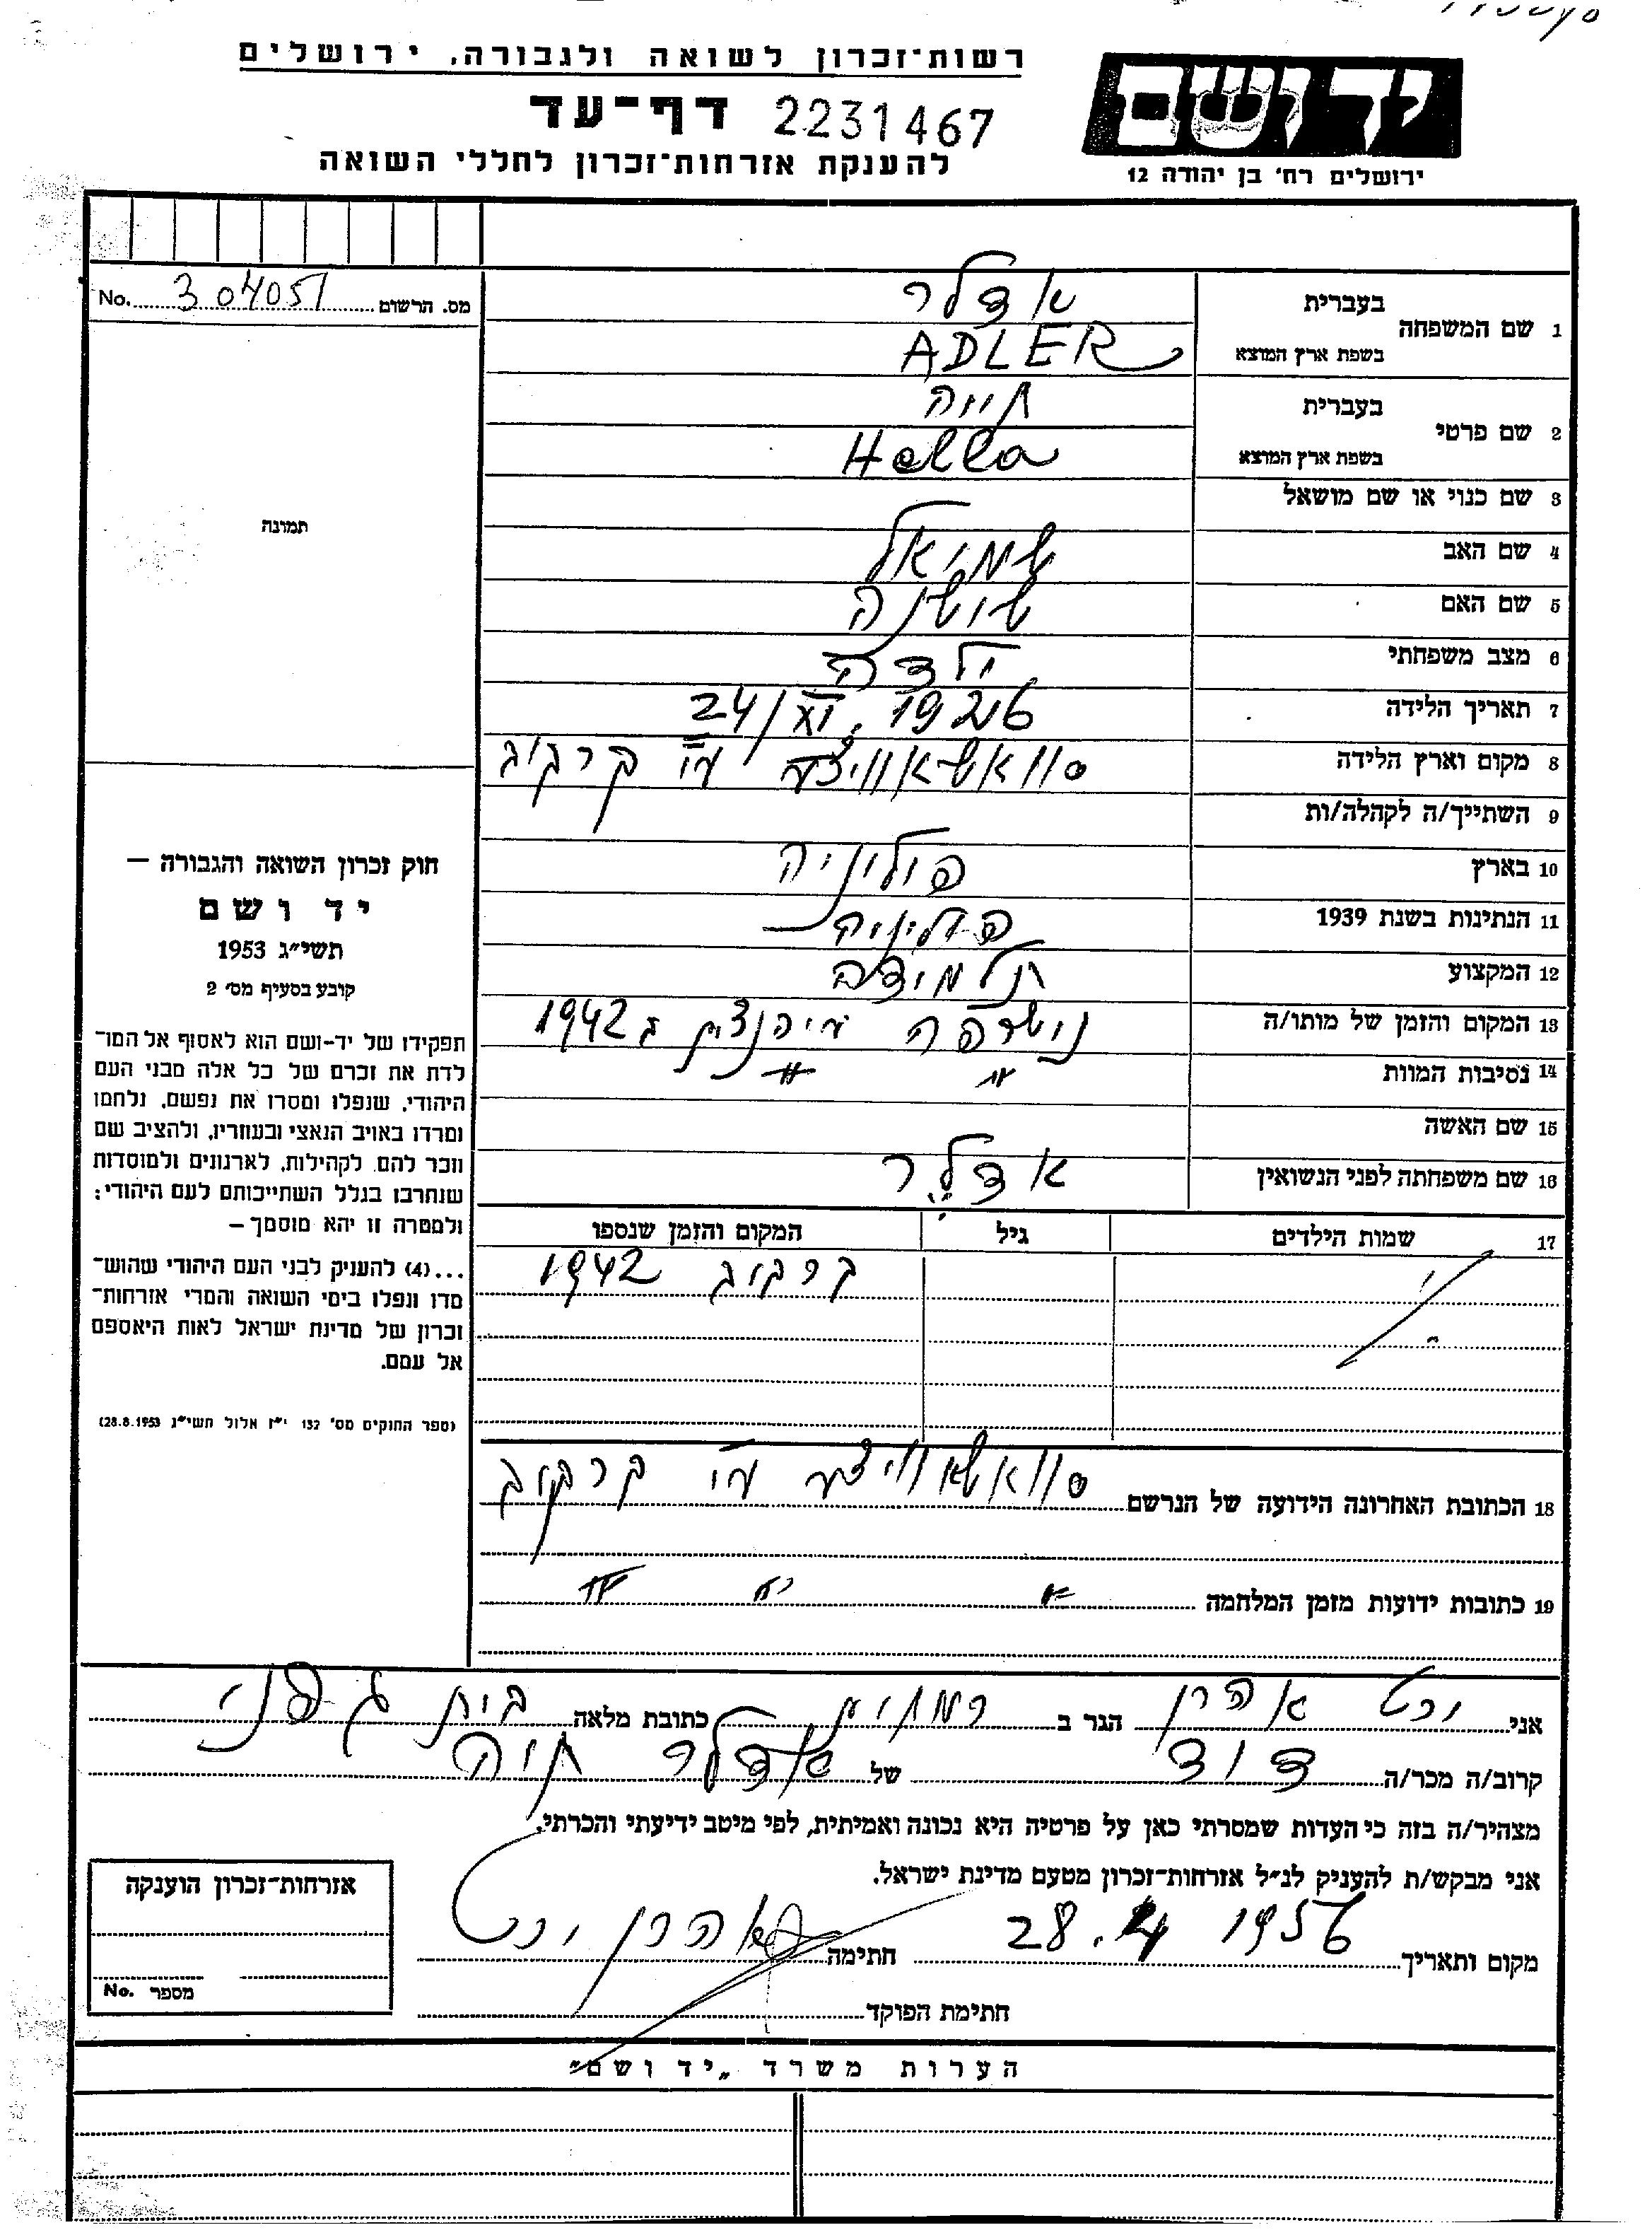 רשות־זכרון לשואה ולגבורה, ירושלים
ידושם
דף־עד 2231467
להענקת אזרחות־זכרון לחללי השואה
ירושלים רח' בן יהודה 12
No. 304051 מס. הרשום
תמונה
1 שם המשפחה
בעברית אדלר
בשפת ארץ המוצא ADLER
2 שם פרטי
בעברית חיה
בשפת ארץ המוצא Hella
3 שם כנוי או שם מושאל
4 שם האב שמואל
5 שם האם שושנה
6 מצב משפחתי ילדה
7 תאריך הלידה 24/XI. 1926
8 מקום וארץ הלידה קרקוב
9 השתייך/ה לקהלה/ות
10 בארץ פולניה
11 הנתינות בשנת 1939 פולניה
12 המקצוע תלמידה
13 המקום והזמן של מותו/ה 1942
14 נסיבות המוות " "
15 שם האשה
16 שם משפחתה לפני הנשואין אדלר
17 שמות הילדים גיל המקום והזמן שנספו
קרקוב 1942
18 הכתובת האחרונה הידועה של הנרשם קרקוב
19 כתובות ידועות מזמן המלחמה " " "
חוק זכרון השואה והגבורה –
יד ושם
תשי"ג 1953
קובע בסעיף מס' 2
תפקידו של יד-ושם הוא לאסוף אל המו־
לדת את זכרם של כל אלה מבני העם
היהודי, שנפלו ומסרו את נפשם, נלחמו
ומרדו באויב הנאצי ובעוזריו, ולהציב שם
וזכר להם, לקהילות, לארגונים ולמוסדות
שנחרבו בגלל השתייכותם לעם היהודי;
ולמטרה זו יהא מוסמך –
...(4) להעניק לבני העם היהודי שהוש־
מדו ונפלו בימי השואה והמרי אזרחות־
זכרון של מדינת ישראל לאות היאספם
אל עמם.
(ספר החוקים מס' 132 י"ז אלול תשי"ג 28.8.1953)
אני אהרן הגר ב כתובת מלאה בית
קרוב/ה מכר/ה דוד של אדלר חיה
מצהיר/ה בזה כי העדות שמסרתי כאן על פרטיה היא נכונה ואמיתית, לפי מיטב ידיעתי והכרתי.
אני מבקש/ת להעניק לנ"ל אזרחות־זכרון מטעם מדינת ישראל.
מקום ותאריך 28. 4 1956 חתימה אהרן
חתימת הפוקד
אזרחות־זכרון הוענקה
No. מספר
הערות משרד „יד ושם"